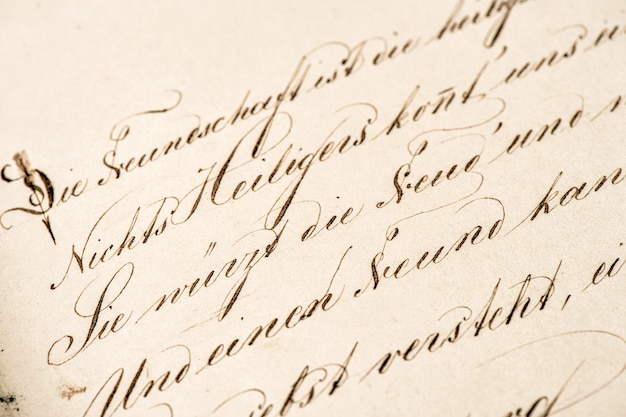 Die Freundschaft ist die heilig
Nichts Heiligers konnt' uns ei
Sie würzt die Freud' und m
Und einen Freund kan
iebst versteht, ei